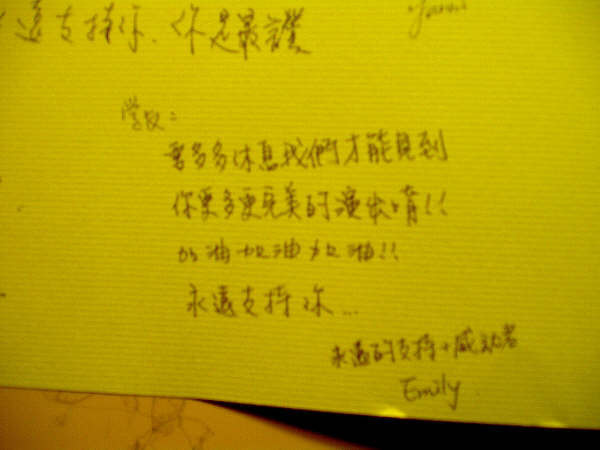 遠支持你、你是最
学友：
要多多休息我們才能見到
你更多更完美的演出唷!!
加油加油加油!!
永遠支持你...
永遠的支持+感動者
Emily